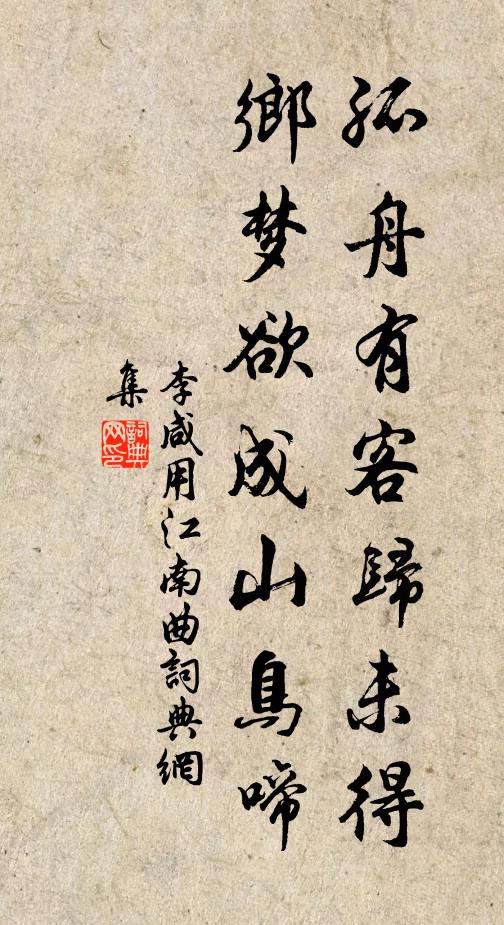 孤舟有客歸未得
鄉梦欲成山鳥啼
李咸用江南曲詞典網
集
詞典
网印